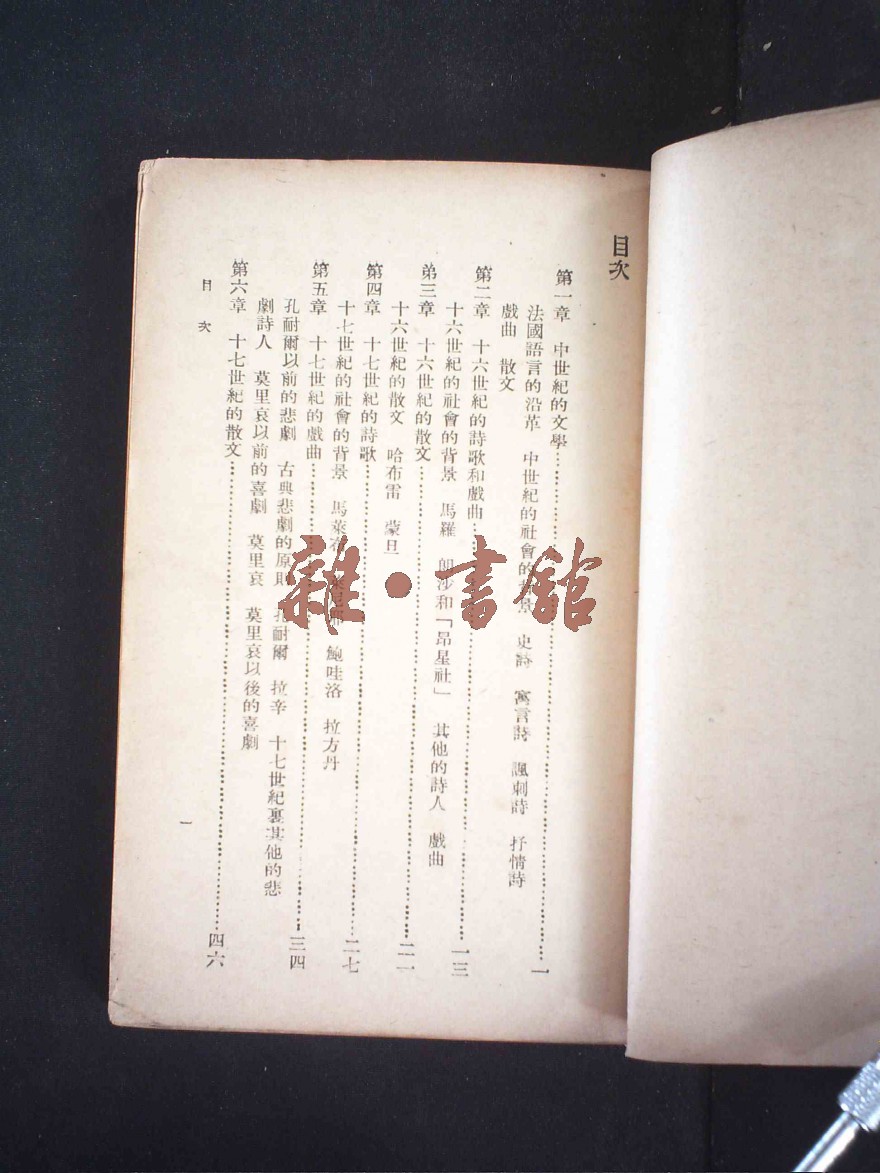 目次
第一章 中世紀的文學……一
法國語言的沿革 中世紀的社會的 景 史詩 寓言詩 諷刺詩 抒情詩
戲曲 散文
第二章 十六世紀的詩歌和戲曲……一三
十六世紀的社會的背景 馬羅 朗沙和「昂星社」 其他的詩人 戲曲
弟三章 十六世紀的散文……二一
十六世紀的散文 哈布雷 蒙旦
第四章 十七世紀的詩歌……二七
十七世紀的社會的背景 馬萊 鮑哇洛 拉方丹
第五章 十七世紀的戲曲……三四
孔耐爾以前的悲劇 古典悲劇的原則 孔耐爾 拉辛 十七世紀裏其他的悲
劇詩人 莫里哀以前的喜劇 莫里哀 莫里哀以後的喜劇
第六章 十七世紀的散文……四六
目 次
一
雜·書館